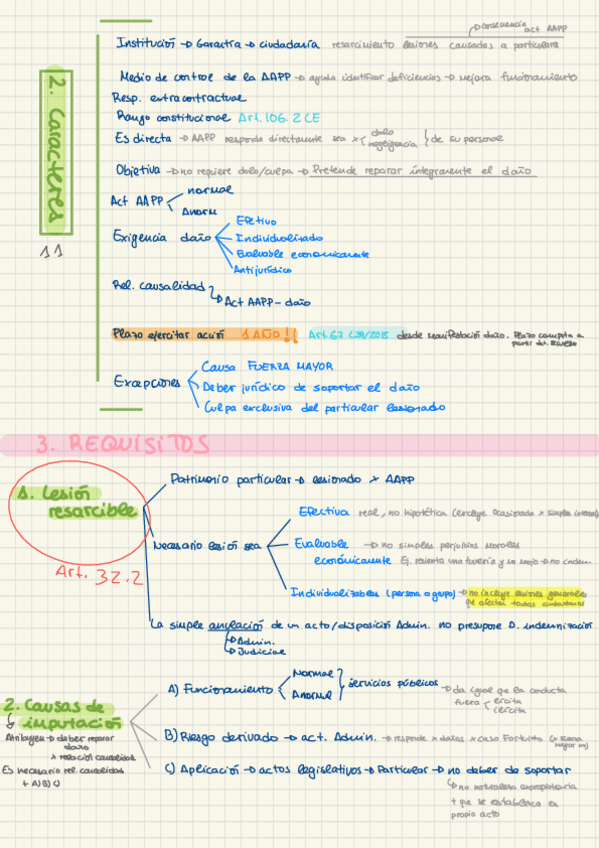 consecuencia act AAPP
Institución → Garantía → ciudadanía resarcimiento lesiones causadas a particulares
Medio de control de la AAPP → ayuda identificar deficiencias → mejora funcionamiento
Resp. extracontractual
Rango constitucional Art. 106.2 CE
2. Caracteres
Es directa → AAPP responde directamente sea x { dolo negligencia } de su personal
Objetiva → no requiere dolo/culpa → Pretende reparar íntegramente el daño
Act AAPP
normal
Anorm
11
Exigencia daño
Efectivo
Individualizado
Evaluable económicamente
Antijurídico
Rel. causalidad
↳ Act AAPP - daño
Plazo ejercitar acción 1 AÑO!! Art. 67 L39/2015 desde manifestación daño. Plazo computa a
partir del
Excepciones
Causa FUERZA MAYOR
Deber jurídico de soportar el daño
Culpa exclusiva del particular lesionado
3. REQUISITOS
1. Lesión
resarcible
Art. 32.2
Patrimonio particular → lesionado x AAPP
Necesario lesión sea
Efectiva real, no hipotética (excluye ocasionada x simples
Evaluable → no simples perjuicios morales
económicamente Ej. revienta una tubería y se mojo → no indem.
Individualizables (persona o grupo) → no incluye lesiones generales
que afectan todos ciudadanos
La simple anulación de un acto/disposición Admin. no presupone D. indemnización
↳ Admin.
↳ Judicial
2. Causas de
imputación
Atribuyen → deber reparar
daño
x relación causalidad
Es necesario rel. causalidad
+ A) B) C)
A) Funcionamiento { Normal Anormal } servicios públicos → da igual que la conducta
fuera { lícita ilícita
B) Riesgo derivado → act. Admin. → responde x daños x caso Fortuito (x Fuerza
mayor no)
C) Aplicación → actos legislativos → Particular → no deber de soportar
↳ no naturaleza expropiatoria
+ que se establezca en
propio acto